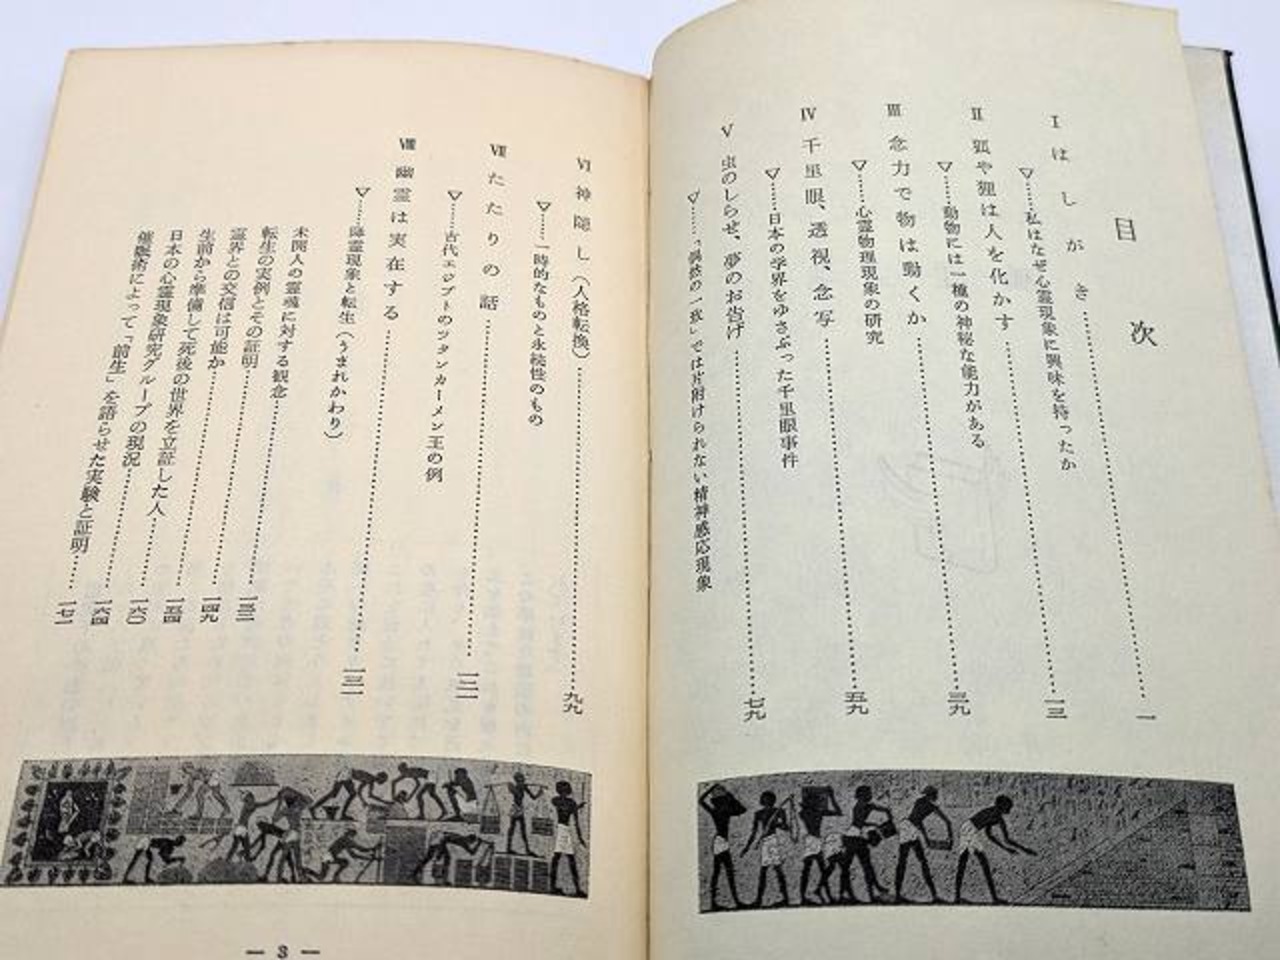 目次
I はしがき……一
▽……私はなぜ心霊現象に興味を持ったか
II 狐や狸は人を化かす……一三
▽……動物には一種の神秘な能力がある
III 念力で物は動くか……三九
▽……心霊物理現象の研究
IV 千里眼、透視、念写……五九
▽……日本の学界をゆさぶった千里眼事件
V 虫のしらせ、夢のお告げ……七九
▽……「偶然の一致」では片附けられない精神感応現象
VI 神隠し（人格転換）……九九
▽……一時的なものと永続性のもの
VII たたりの話……一二一
▽……古代エジプトのツタンカーメン王の例
VIII 幽霊は実在する……一三一
▽……降霊現象と転生（うまれかわり）
未開人の霊魂に対する観念
転生の実例とその証明……一三二
霊界との交信は可能か……一四九
生前から準備して死後の世界を立証した人……一五四
日本の心霊現象研究グループの現況……一六〇
催眠術によって「前生」を語らせた実験と証明……一六四
一七一
— 3 —